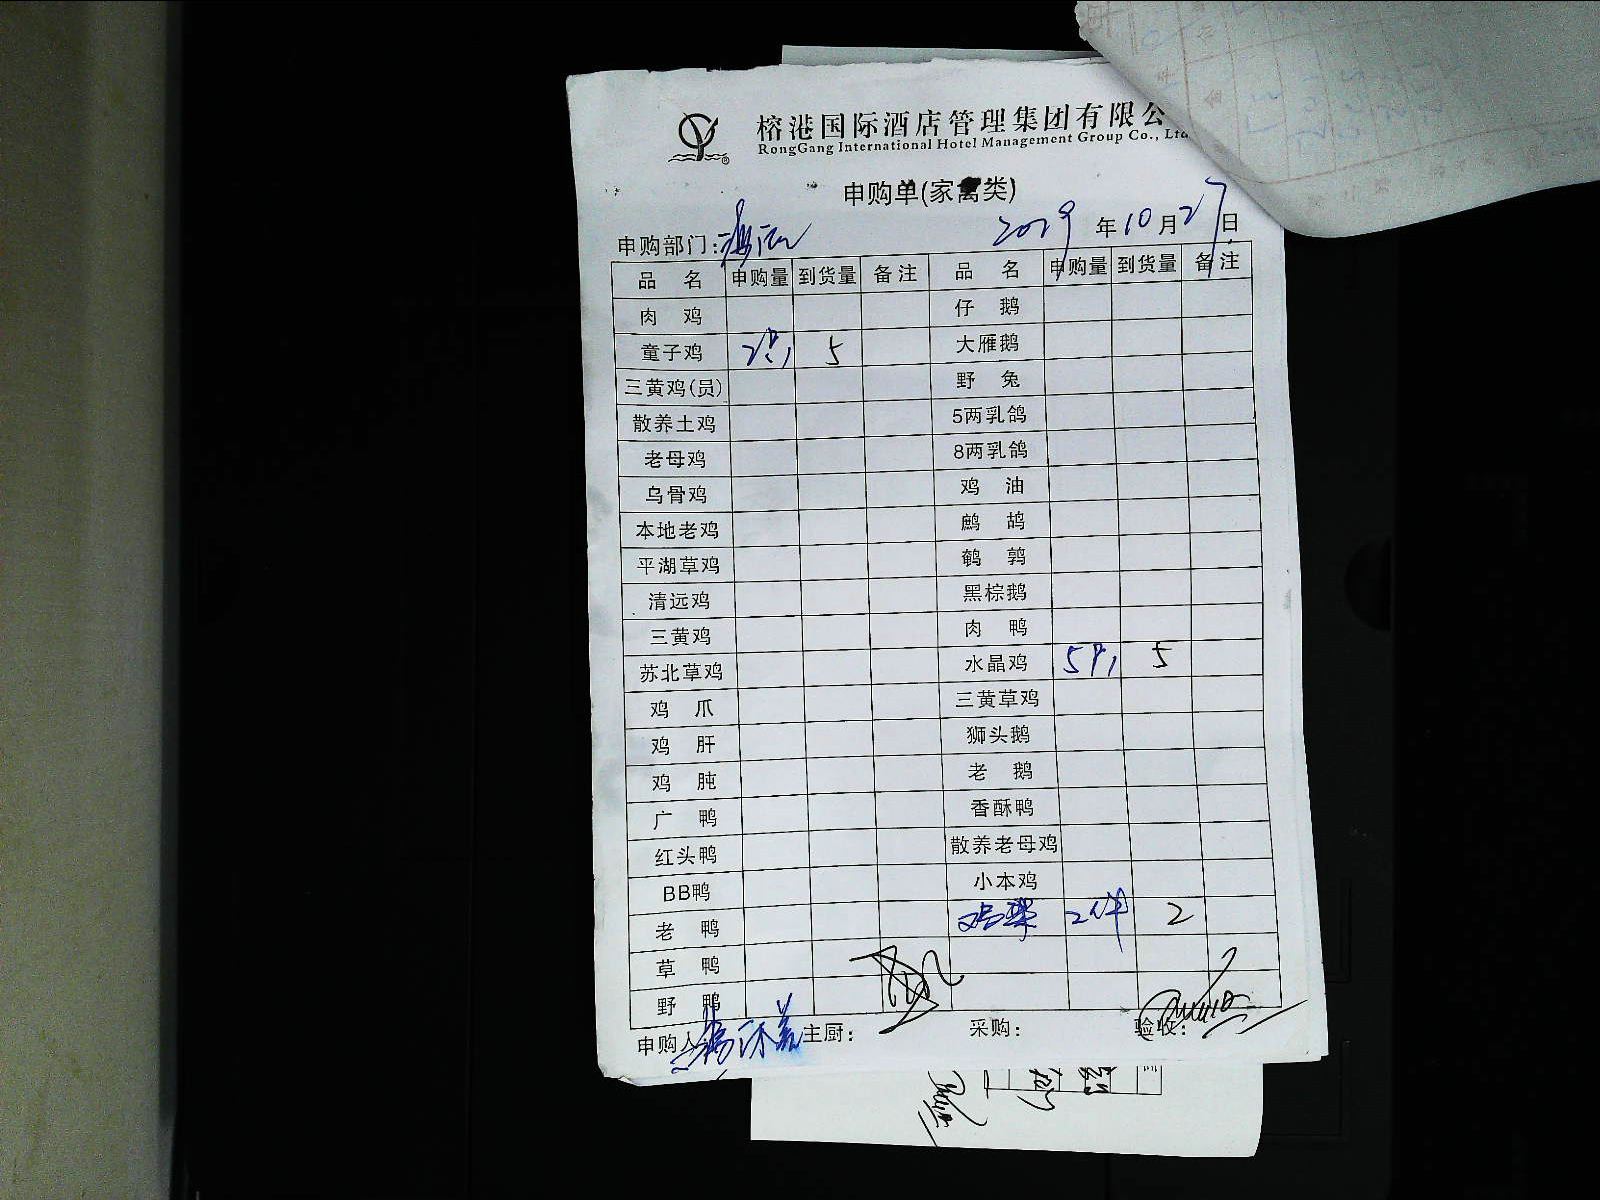 榕港国际酒店管理集团有限公
RongGang International Hotel Management Group Co., Ltd
申购单(家禽类)
申购部门: 2029 年 10 月 27 日
品 名 申购量 到货量 备注 品 名 申购量 到货量 备注
肉 鸡 仔 鹅
童子鸡 5 大雁鹅
三黄鸡(员) 野 兔
散养土鸡 5两乳鸽
老母鸡 8两乳鸽
乌骨鸡 鸡 油
本地老鸡 鹧 鸪
平湖草鸡 鹌 鹑
清远鸡 黑棕鹅
三黄鸡 肉 鸭
苏北草鸡 水晶鸡 5个 5
鸡 爪 三黄草鸡
鸡 肝 狮头鹅
鸡 肫 老 鹅
广 鸭 香酥鸭
红头鸭 散养老母鸡
BB鸭 小本鸡
老 鸭 2件 2
草 鸭
野 鸭
申购人 主厨: 采购: 验收: